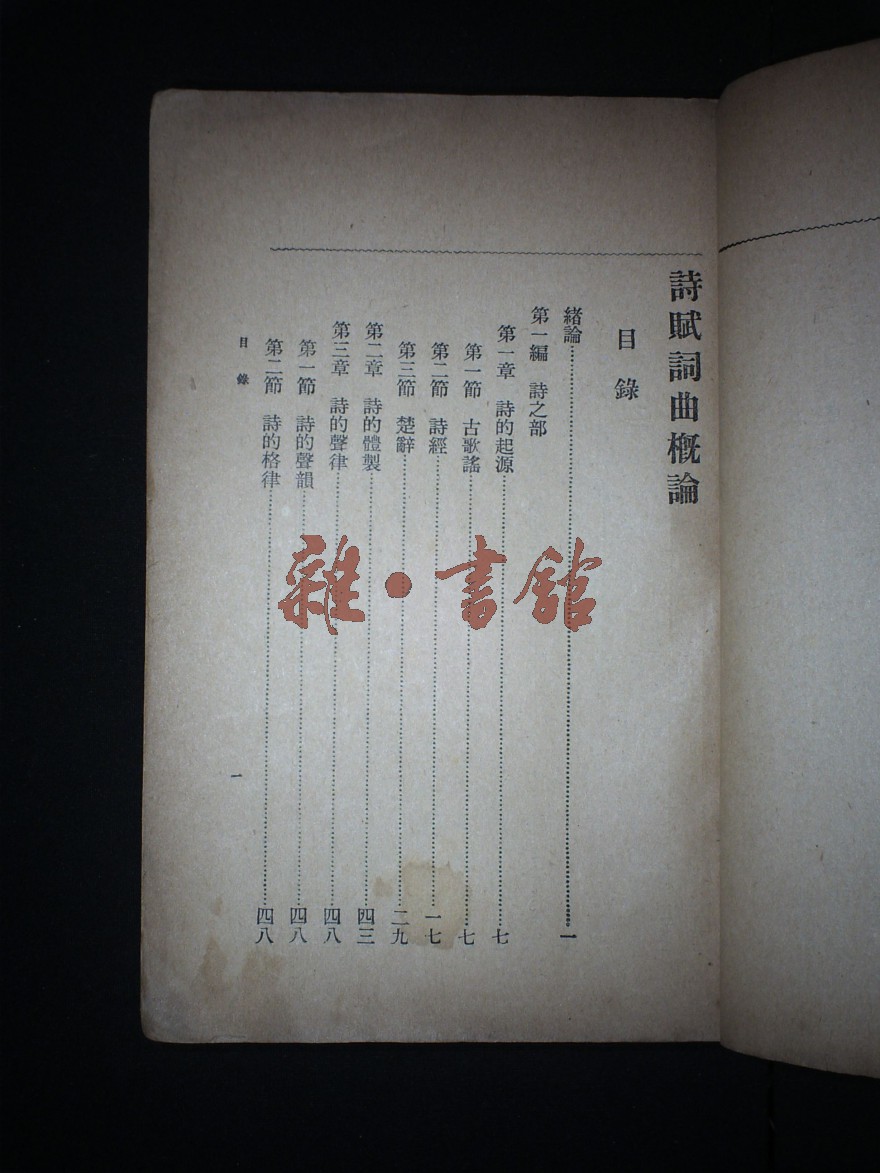 詩賦詞曲概論
目錄
緒論……一
第一編　詩之部
第一章　詩的起源……七
第一節　古歌謠……七
第二節　詩經……一七
第三節　楚辭……二九
第二章　詩的體製……四三
第三章　詩的聲律……四八
第一節　詩的聲韻……四八
第二節　詩的格律……四八
目錄
一
雜·書館